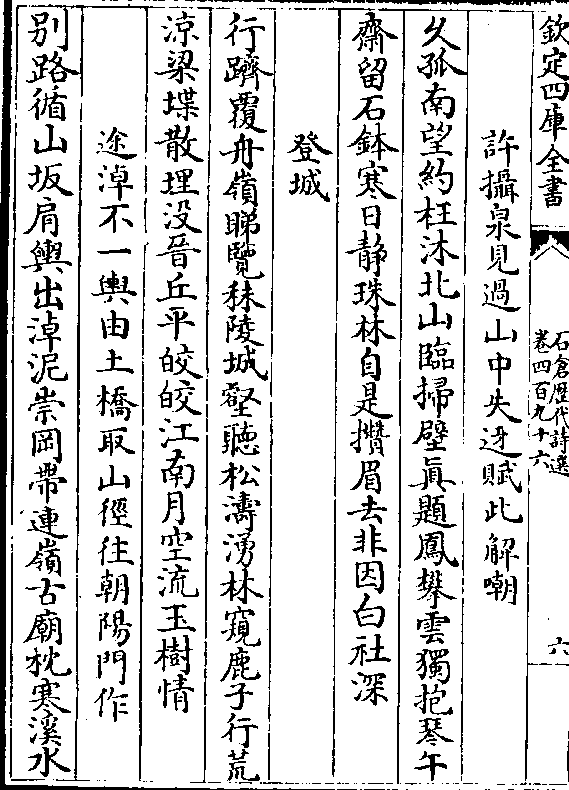 欽定四庫全書
石倉歷代詩選
卷四百九十六
六
許攝泉見過山中失迓賦此解嘲
久孤南望約枉沐北山臨掃壁真題鳳攀雲獨抱琴午
齋留石鉢寒日靜珠林自是攢眉去非因白社深
登城
行躋覆舟嶺睇覽秣陵城壑聽松濤湧林窺鹿子行荒
涼梁堞散埋没晉丘平皎皎江南月空流玉樹情
途淖不一輿由土橋取山徑往朝陽門作
别路循山坂肩輿出淖泥崇岡帶連嶺古廟枕寒溪水